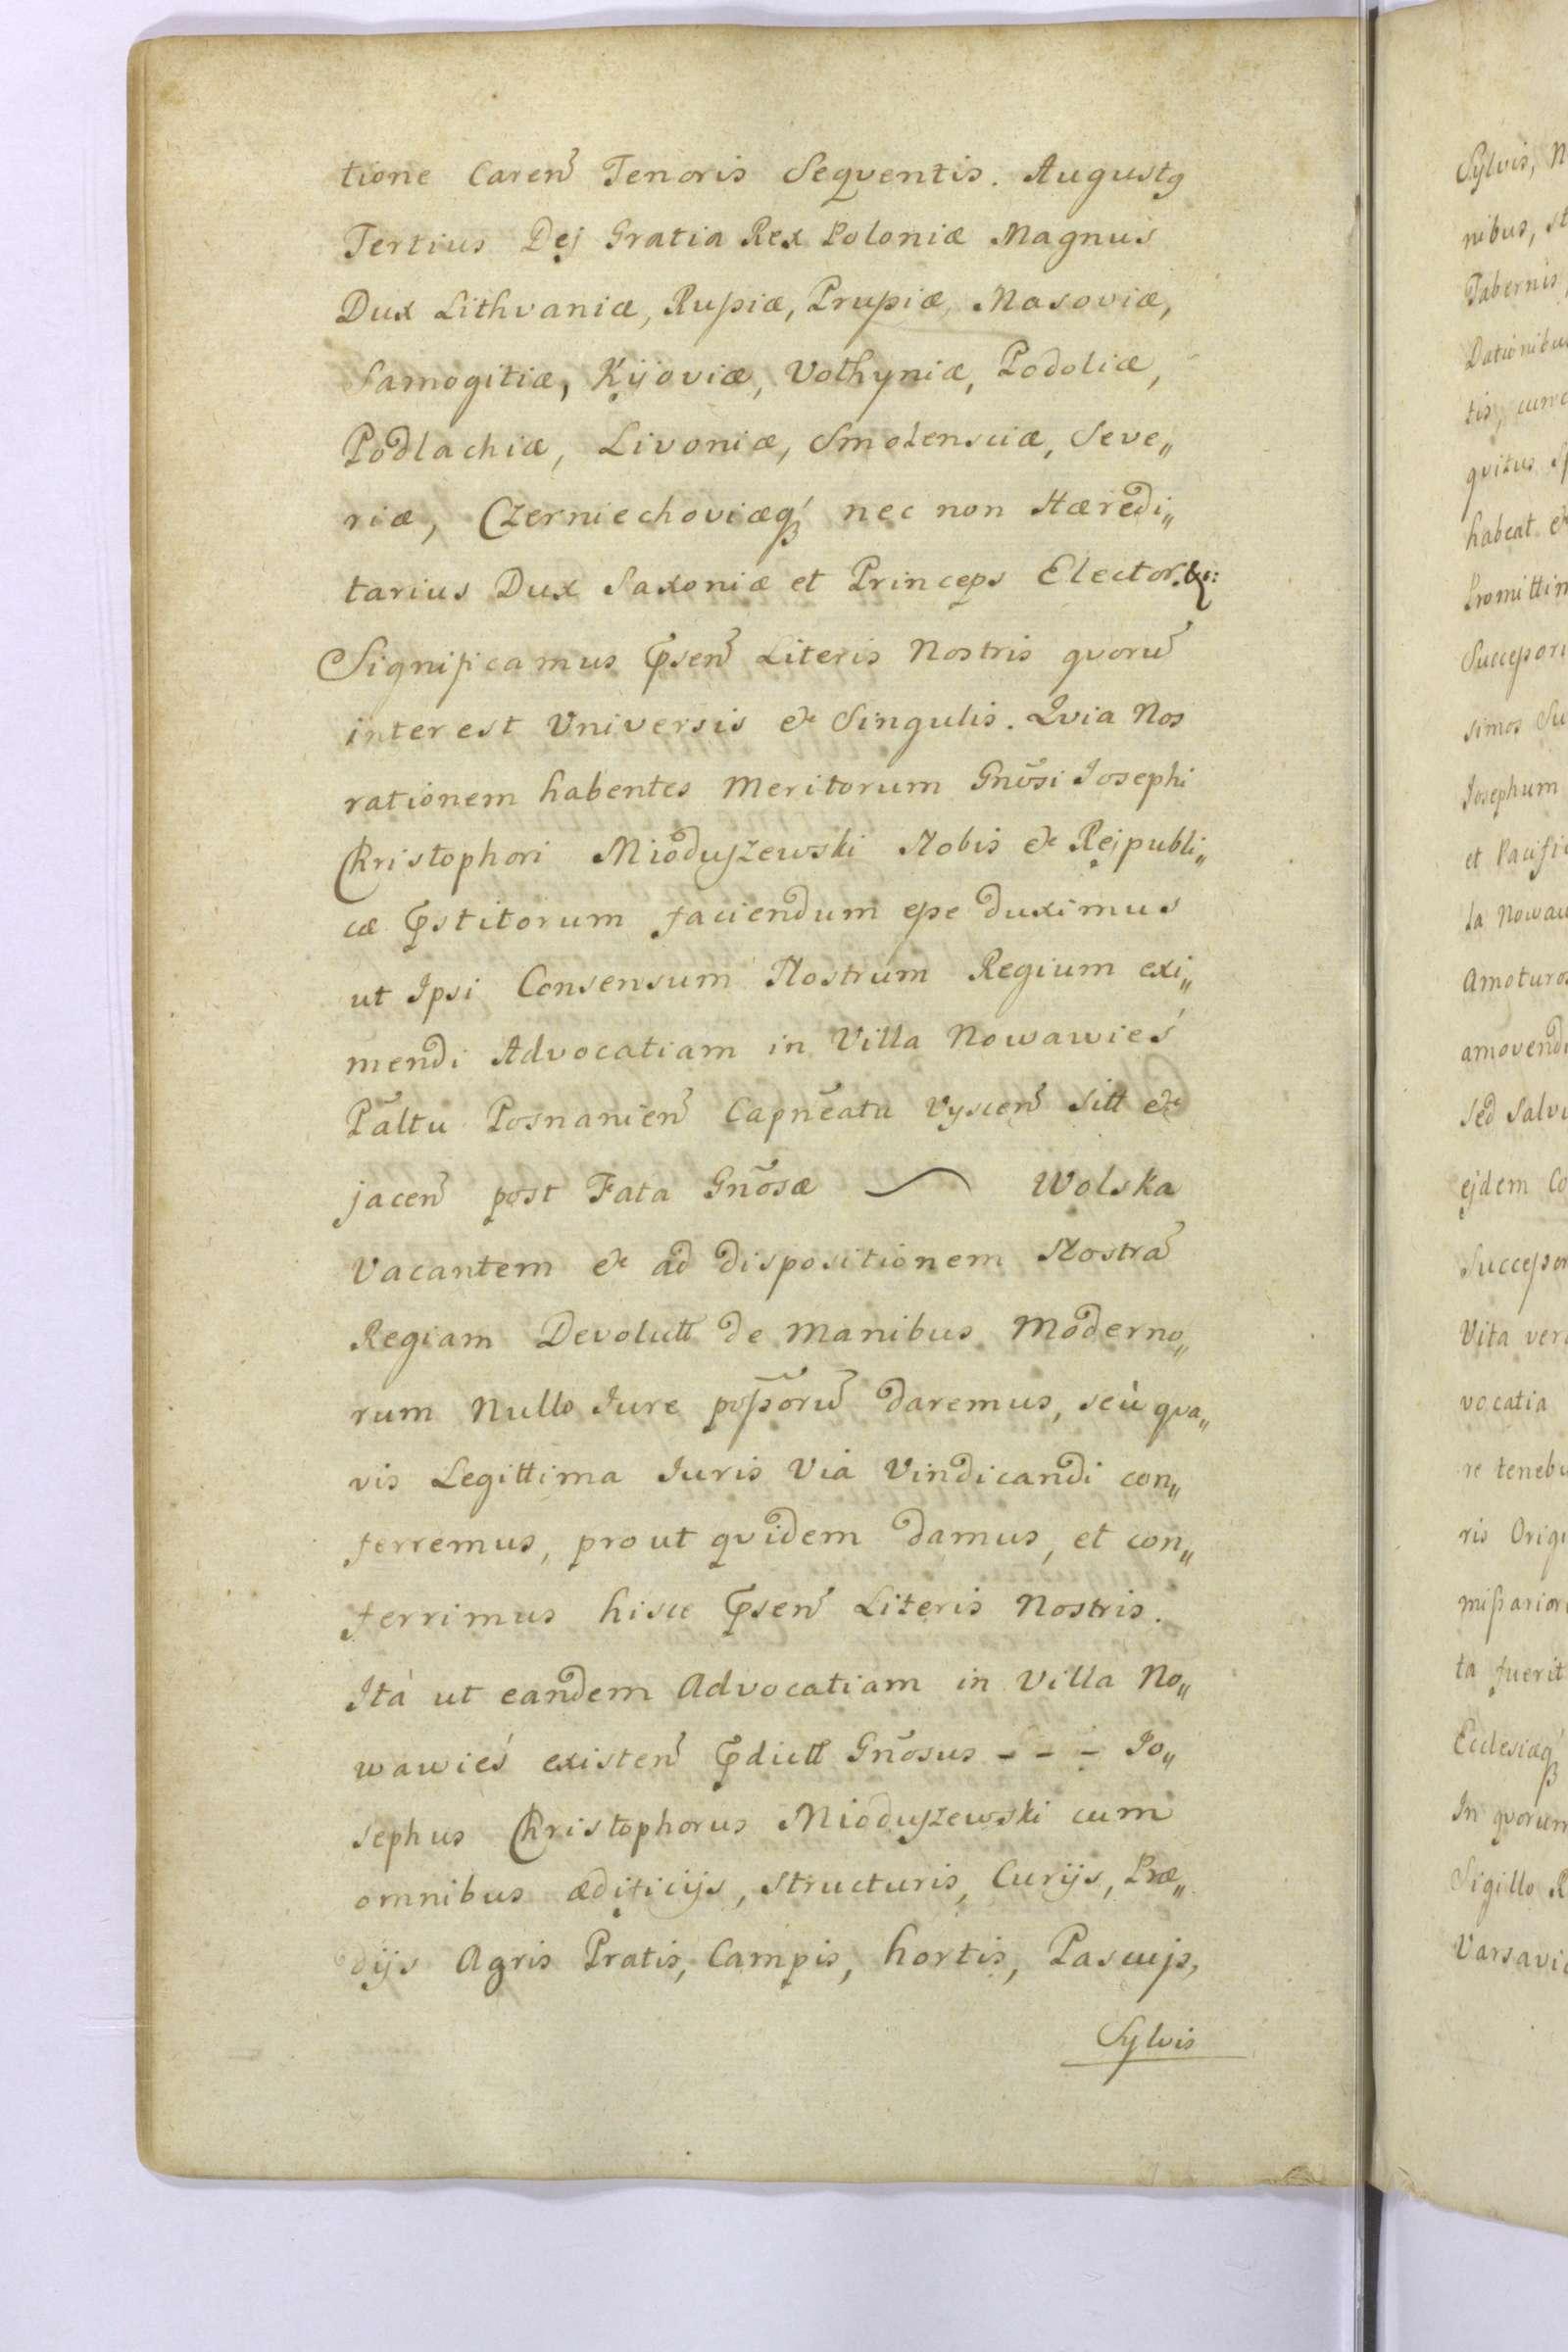 tione Caren̄ Tenoris Seqventis. Augustꝰ
Tertius Dej Gratia Rex Poloniæ Magnus
Dux Lithvaniæ, Rußiæ, Prußiæ, Masoviæ,
Samogitiæ, Kijoviæ, Volhyniæ, Podoliæ,
Podlachiæ, Livoniæ, Smolensciæ, Seve„
riæ, Czerniechoviæqꝫ nec non Hæredi„
tarius Dux Saxoniæ et Princeps Elector. &:
Significamus Pҏsen̄ Literis Nostris qvorū
interest Universis & Singulis. Qvia Nos
rationem habentes Meritorum Gn̄osi Josephi
Christophori Mioduszewski Nobis & Rejpubli„
cæ Pҏstitorum faciendum eße duximus
ut Ipsi Consensum Nostrum Regium exi„
mendi Advocatiam in Villa Nowawieś
Pāltu Posnanien̄ Capn̄eatu Uyscen̄ sitt &
jacen̄ post Fata Gn̄osæ ~ Wolska
Vacantem & ad dispositionem Nostrā
Regiam Devolutt de Manibus Moderno„
rum Nullo Jure poßorū daremus, seù qva„
vis Legittima Juris Via Vindicandi con„
ferremus, prout qvidem damus, et con„
ferrimus hisce Pҏsen̄ Literis Nostris.
Ità ut eandem Advocatiam in Villa No„
wawieś existen̄ Pҏdictt Gn̄osus - - - Jo„
sephus Christophorus Mioduszewski cum
omnibus ædificijs, Structuris, Curijs, Præ„
dijs Agris Pratis, Campis, hortis, Pascujs,
Sylvis
Sylvis, N
nibus, st
Tabernis,
Dationibu
tis, cunc
qvitus sp
habeat &
Promittim
Succeßori
simos Su
Josephum
et Pacifi
la Nowaw
Amoturos
amovendi
sed Salv
ejdem Co
Succeßor
Vita vero
vocatia
re tenebu
ris Origi
mißarior
ta fuerit
Ecclesiæqꝫ
In qvorum
Sigillo R
Varsaviæ